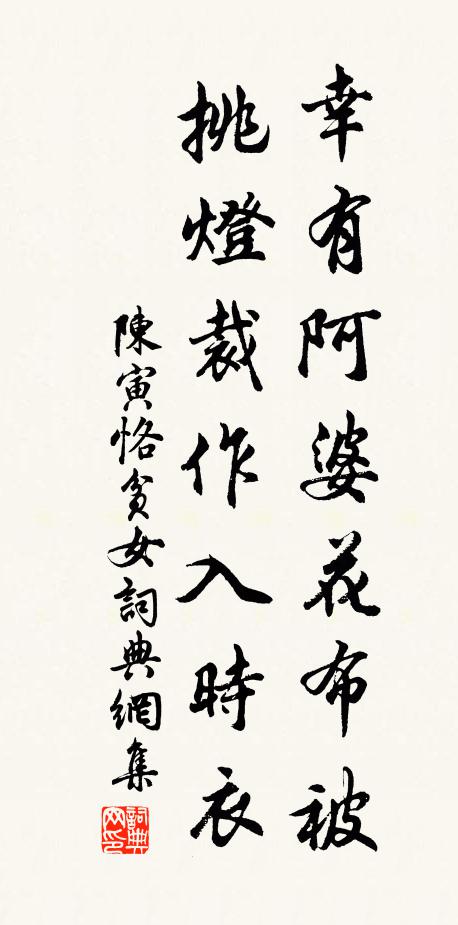 幸有阿婆花布被
挑燈裁作入時衣
陳寅恪貧女詞典網集
詞典网印